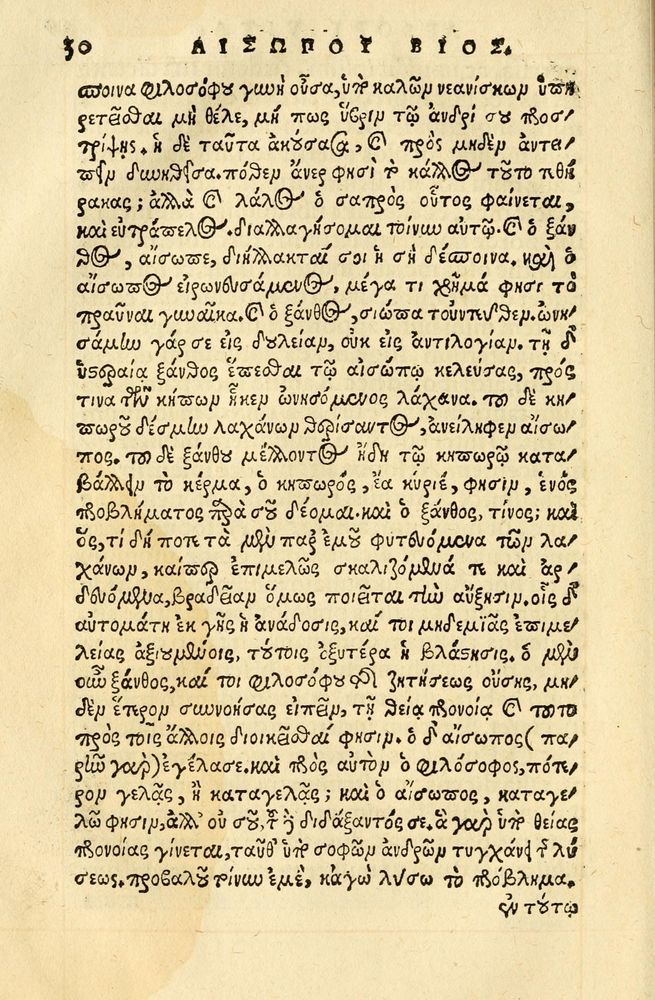 30 ΑΙΣΩΠΟΥ ΒΙΟΣ.
σποινα φιλοσόφου γυνὴ οὖσα, ὑπὸ καλῶν νεανίσκων ὑπη/
ρετεῖσθαι μὴ θέλε, μή πως ὕβριν τῷ ἀνδρί σου προσ/
τρίψῃς. ἡ δὲ ταῦτα ἀκούσασα, καὶ πρὸς μηδὲν ἀντει/
πεῖν δυνηθεῖσα. πόθεν ἄνερ φησὶ τὸ κάλλος τοῦτο τεθή/
ρακας; ἀλλὰ καὶ λάλος ὁ σαπρὸς οὗτος φαίνεται,
καὶ εὐτράπελος. διαλλαγήσομαι τοίνυν αὐτῷ. καὶ ὁ ξάν/
θος, αἴσωπε, διήλλακταί σοι ἡ σὴ δέσποινα. καὶ ὁ
αἴσωπος εἰρωνευσάμενος, μέγα τι χρῆμά φησι τὸ
πραῦναι γυναῖκα. καὶ ὁ ξάνθος, σιώπα τοὐντεῦθεν. ὠνη/
σάμην γάρ σε εἰς δουλείαν, οὐκ εἰς ἀντιλογίαν. τῇ δ'
ὑστεραίᾳ ξάνθος ἕπεσθαι τῷ αἰσώπῳ κελεύσας, πρός
τινα τῶν κήπων ἧκεν ὠνησόμενος λάχανα. τοῦ δὲ κη/
πωροῦ δέσμην λαχάνων θερίσαντος, ἀνείληφεν αἴσω/
πος. τοῦ δὲ ξάνθου μέλλοντος ἤδη τῷ κηπωρῷ κατα/
βάλλειν τὸ κέρμα, ὁ κηπωρός, ἔα κύριέ, φησιν, ἑνὸς
προβλήματος παρὰ σοῦ δέομαι. καὶ ὁ ξάνθος, τίνος; καὶ
ὅς, τί δή ποτε τὰ μὲν παρ' ἐμοῦ φυτευόμενα τῶν λα/
χάνων, καίπερ ἐπιμελῶς σκαλιζόμενά τε καὶ ἀρ/
δευόμενα, βραδεῖαν ὅμως ποιεῖται τὴν αὔξησιν. οἷς δ'
αὐτομάτη ἐκ γῆς ἡ ἀνάδοσις, καί τοι μηδεμιᾶς ἐπιμε/
λείας ἀξιουμένοις, τούτοις ὀξυτέρα ἡ βλάστησις. ὁ μὲν
οὖν ξάνθος, καί τοι φιλοσόφου τῆς ζητήσεως οὔσης, μη/
δὲν ἕτερον συννοήσας εἰπεῖν, τῇ θείᾳ προνοίᾳ καὶ τοῦτο
πρὸς τοῖς ἄλλοις διοικεῖσθαί φησιν. ὁ δ' αἴσωπος (πα/
ρῆν γὰρ) ἐγέλασε. καὶ πρὸς αὐτὸν ὁ φιλόσοφος, πότε/
ρον γελᾷς, ἢ καταγελᾷς; καὶ ὁ αἴσωπος, καταγε/
λῶ φησιν, ἀλλ' οὐ σοῦ, τοῦ δὲ διδάξαντός σε. ἃ γὰρ ὑπὸ θείας
προνοίας γίνεται, ταῦθ' ὑπὸ σοφῶν ἀνδρῶν τυγχάνει τῆς λύ/
σεως. προβαλοῦ τοίνυν ἐμέ, κἀγὼ λύσω τὸ πρόβλημα.
ἐν τούτῳ